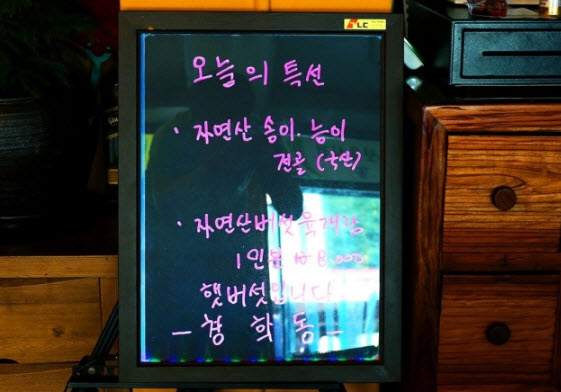 LC
오늘의 특선
· 자연산 송이·능이
전골 (국산)
· 자연산버섯육개장
1인분 ₩8,000
햇버섯입니다
- 청학동 -